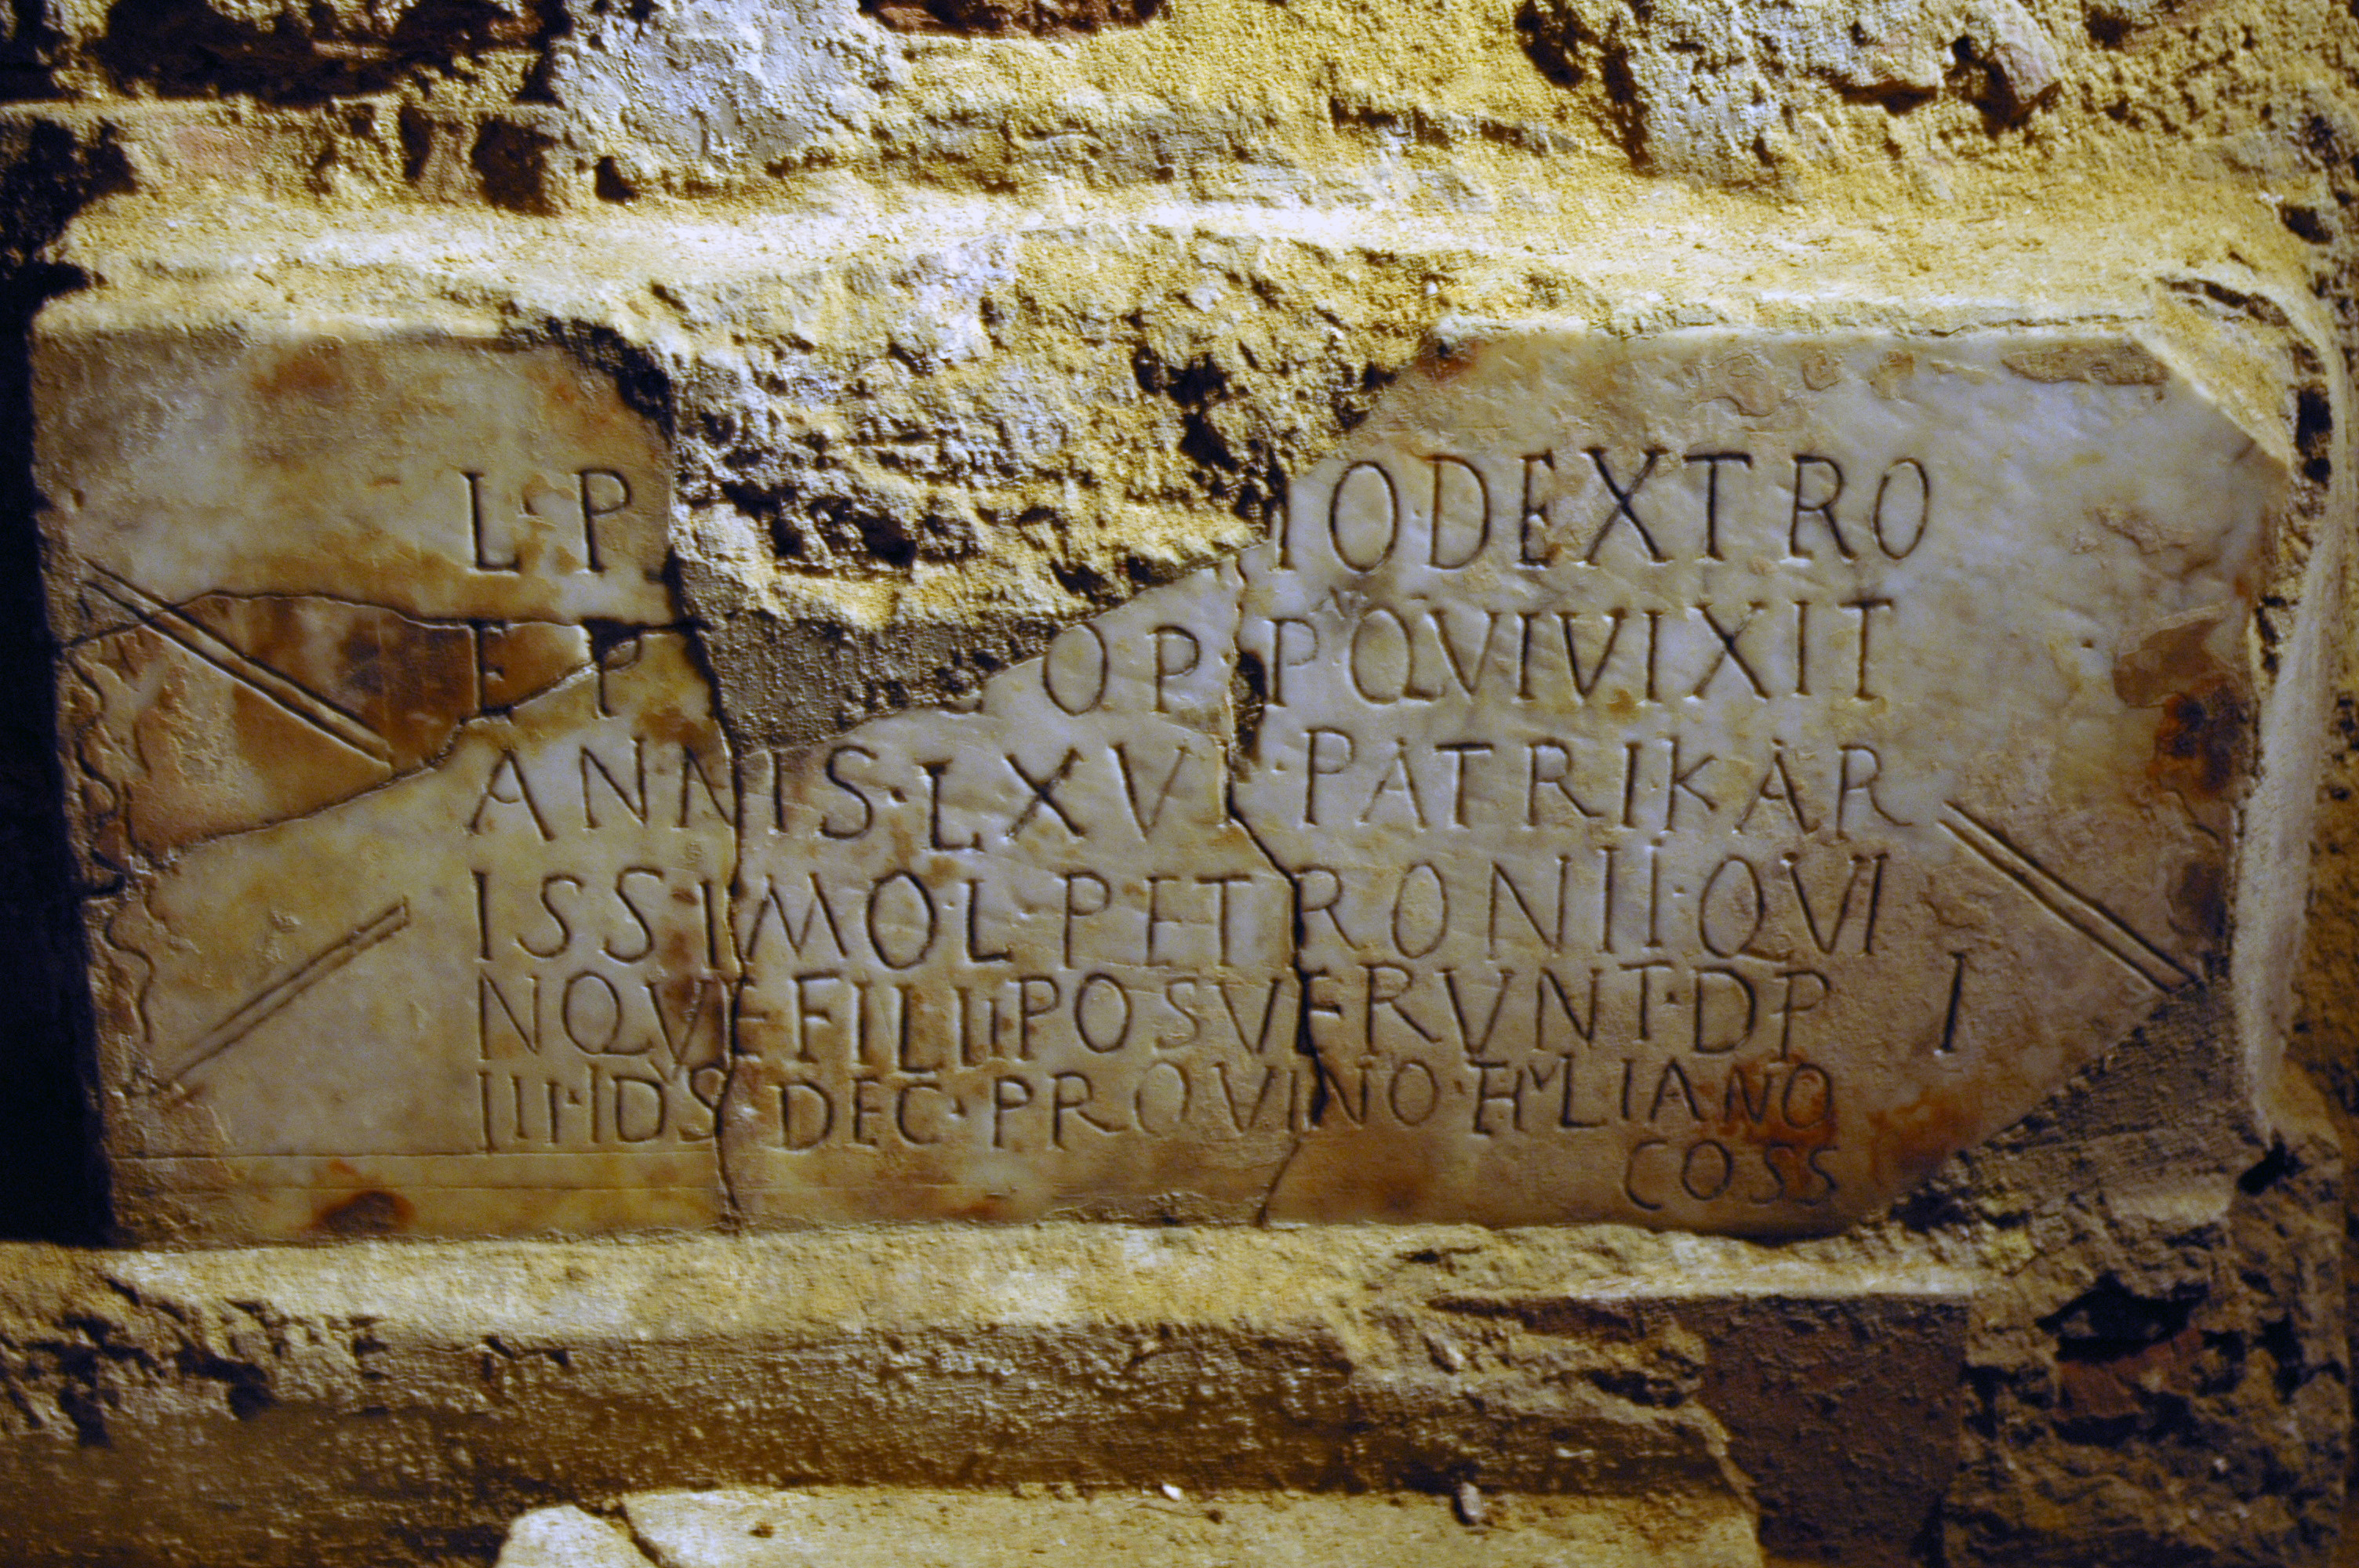 L·P IO·DEXTRO
EP OP·PQVIVIXIT
ANNIS·LXV ·PATRIKAR
ISSIMOL·PETRONII·QVI
NQVEFILIIPOSVERVNT·DP I
DEC·PROVINO·EMLIANO
COSS